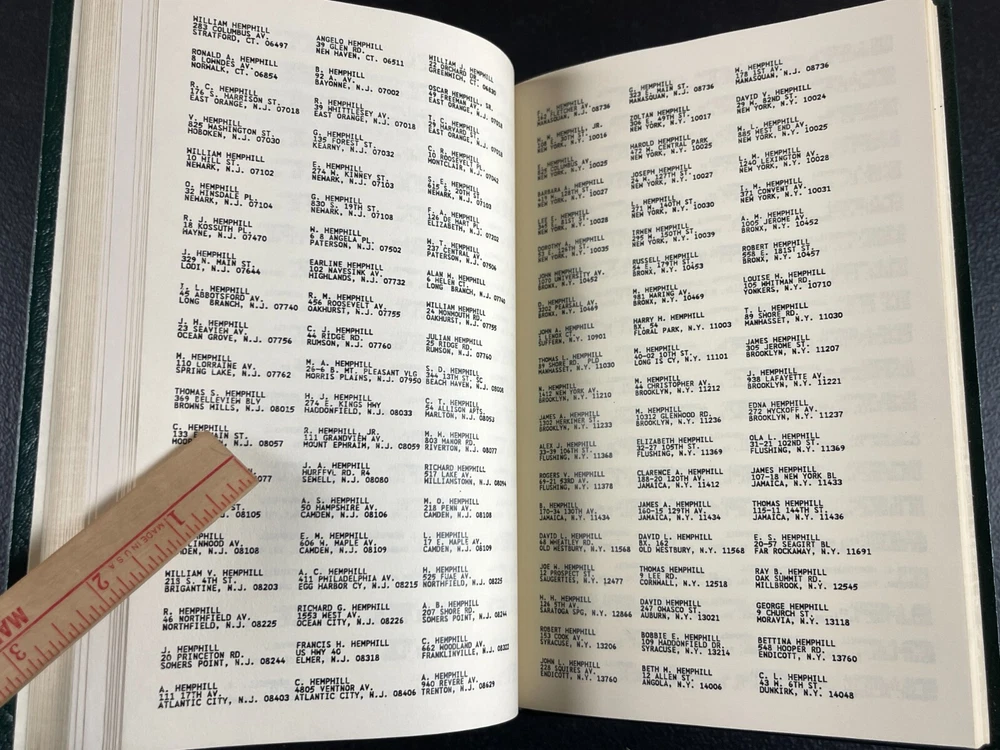 WILLIAM HEMPHILL
283 COLUMBUS AV.
STRATFORD, CT. 06497
RONALD A. HEMPHILL
8 LOWNDES AV.
NORWALK, CT. 06854
R. C. HEMPHILL
HARRISON ST.
EAST ORANGE, N.J. 07018
V. HEMPHILL
825 WASHINGTON ST.
HOBOKEN, N.J. 07030
WILLIAM HEMPHILL
10 HILL ST.
NEWARK, N.J. 07102
O. HEMPHILL
32 HINSDALE PL.
NEWARK, N.J. 07104
R. J. HEMPHILL
18 KOSSUTH PL.
WAYNE, N.J. 07470
J. HEMPHILL
329 N. MAIN ST.
LODI, N.J. 07644
T. L. HEMPHILL
45 ABBOTSFORD AV.
LONG BRANCH, N.J. 07740
J. H. HEMPHILL
23 SEAVIEW AV.
OCEAN GROVE, N.J. 07756
M. HEMPHILL
110 LORRAINE AV.
SPRING LAKE, N.J. 07762
THOMAS S. HEMPHILL
369 BELLEVIEW BLV
BROWNS MILLS, N.J. 08015
C. HEMPHILL
133 MAIN ST.
N.J. 08057
077
ST.
08105
LINWOOD AV.
DEN, N.J. 08108
WILLIAM V. HEMPHILL
213 S. 4TH ST.
BRIGANTINE, N.J. 08203
R. HEMPHILL
46 NORTHFIELD AV.
NORTHFIELD, N.J. 08225
J. HEMPHILL
20 PRINCETON RD.
SOMERS POINT, N.J. 08244
A. HEMPHILL
111 17TH AV.
ATLANTIC CITY, N.J. 08403
ANGELO HEMPHILL
39 GLEN RD.
NEW HAVEN, CT. 06511
B. HEMPHILL
92 A. AV.
BAYONNE, N.J. 07002
R. HEMPHILL
39 WHITTLESEY AV.
EAST ORANGE, N.J. 07018
G. HEMPHILL
135 FOREST ST.
KEARNY, N.J. 07032
E. HEMPHILL
274 W. KINNEY ST.
NEWARK, N.J. 07103
G. HEMPHILL
830 S. 19TH ST.
NEWARK, N.J. 07108
W. HEMPHILL
6 8 ANGELA PL.
PATERSON, N.J. 07502
EARLINE HEMPHILL
102 NAVESINK AV.
HIGHLANDS, N.J. 07732
R. M. HEMPHILL
456 ROOSEVELT AV.
OAKHURST, N.J. 07755
C. J. HEMPHILL
44 RIDGE RD.
RUMSON, N.J. 07760
M. A. HEMPHILL
26-6 B. MT. PLEASANT VLG
MORRIS PLAINS, N.J. 07950
H. J. HEMPHILL
274 E. KINGS HWY
HADDONFIELD, N.J. 08033
R. HEMPHILL, JR.
111 GRANDVIEW AV.
MOUNT EPHRAIM, N.J. 08059
J. A. HEMPHILL
HURFVL RD. R4
SEWELL, N.J. 08080
A. S. HEMPHILL
50 HAMPSHIRE AV.
CAMDEN, N.J. 08106
E. M. HEMPHILL
606 N. MAPLE AV.
CAMDEN, N.J. 08109
A. C. HEMPHILL
411 PHILADELPHIA AV.
EGG HARBOR CY, N.J. 08215
RICHARD G. HEMPHILL
1553 WEST AV.
OCEAN CITY, N.J. 08226
FRANCIS H. HEMPHILL
US HWY 40
ELMER, N.J. 08318
C. HEMPHILL
4805 VENTNOR AV.
ATLANTIC CITY, N.J. 08406
WILLIAM J. HEMPHILL
22 ORCHARD DR.
GREENWICH, CT. 06830
OSCAR HEMPHILL, SR.
49 FREEMAN AV.
EAST ORANGE, N.J. 07018
T. C. HEMPHILL
29 HARVARD ST.
EAST ORANGE, N.J. 07018
C. R. HEMPHILL
10 ROOSEVELT PL.
MONTCLAIR, N.J. 07042
S. E. HEMPHILL
615 S. 20TH ST.
NEWARK, N.J. 07103
F. A. HEMPHILL
126 DE HART PL.
ELIZABETH, N.J. 07202
W. T. HEMPHILL
237 CENTRAL AV.
PATERSON, N.J. 07506
ALAN W. HEMPHILL
6 HELEN CT.
LONG BRANCH, N.J. 07740
WILLIAM HEMPHILL
24 MONMOUTH RD.
OAKHURST, N.J. 07755
JULIAN HEMPHILL
25 RIDGE RD.
RUMSON, N.J. 07760
S. D. HEMPHILL
344 13TH ST. SC
BEACH HAVEN, N.J. 08008
C. T. HEMPHILL
54 ALLISON APTS.
MARLTON, N.J. 08053
M. H. HEMPHILL
803 MANOR RD.
RIVERTON, N.J. 08077
RICHARD HEMPHILL
517 LAKE AV.
WILLIAMSTOWN, N.J. 08094
M. D. HEMPHILL
218 PENN AV.
CAMDEN, N.J. 08108
L. HEMPHILL
17 E. MAPLE AV.
CAMDEN, N.J. 08109
H. HEMPHILL
525 FUAE AV.
NORTHFIELD, N.J. 08225
A. B. HEMPHILL
207 SHORE RD.
SOMERS POINT, N.J. 08244
C. HEMPHILL
662 WOODLAND AV.
FRANKLINVILLE, N.J. 08322
A. HEMPHILL
940 REVERE AV.
TRENTON, N.J. 08629
HEMPHILL
FLETCHER AV.
MANASQUAN, N.J. 08736
HEMPHILL, JR.
30TH ST.
NEW YORK, N.Y. 10016
HEMPHILL
COLUMBUS AV.
NEW YORK, N.Y. 10025
BARBARA HEMPHILL
419 W. 128TH ST.
NEW YORK, N.Y. 10027
LEE E. HEMPHILL
81ST ST.
NEW YORK, N.Y. 10028
DOROTHY HEMPHILL
124TH ST.
NEW YORK, N.Y. 10035
JOHN HEMPHILL
UNIVERSITY AV.
BRONX, N.Y. 10452
D. HEMPHILL
3202 PEARSALL AV.
BRONX, N.Y. 10469
JOHN A. HEMPHILL
LENOX CT.
SUFFERN, N.Y. 10901
THOMAS L. HEMPHILL
89 SHORE RD. PLD
MANHASSET, N.Y. 11030
N. HEMPHILL
1412 NEW YORK AV.
BROOKLYN, N.Y. 11210
JAMES A. HEMPHILL
1302 HERKIMER ST.
BROOKLYN, N.Y.
ALEX J. HEMPHILL
33-39 106TH ST.
FLUSHING, N.Y. 11368
ROGERS V. HEMPHILL
69-21 52RD AV.
FLUSHING, N.Y. 11378
B. HEMPHILL
170-34 130TH AV.
JAMAICA, N.Y. 11434
DAVID L. HEMPHILL
48 WHEATLEY RD.
OLD WESTBURY, N.Y. 11568
JOE W. HEMPHILL
12 PROSPECT ST.
SAUGERTIES, N.Y. 12477
H. H. HEMPHILL
126 5TH AV.
SARATOGA SPG, N.Y. 12866
ROBERT HEMPHILL
153 COOK AV.
SYRACUSE, N.Y. 13206
JOHN L. HEMPHILL
228 SQUIRES AV.
ENDICOTT, N.Y. 13760
G. HEMPHILL
323 E. MAIN ST.
MANASQUAN, N.J. 08736
ZOLTAN HEMPHILL
306 E. 49TH ST.
NEW YORK, N.Y. 10017
HAROLD HEMPHILL
472 W. CENTRAL PARK
NEW YORK, N.Y. 10025
JOSEPH HEMPHILL
24 W. 127TH ST.
NEW YORK, N.Y. 10027
L. HEMPHILL
271 W. 140TH ST.
NEW YORK, N.Y. 10030
IRWEN HEMPHILL
295 W. 150TH ST.
NEW YORK, N.Y. 10039
RUSSELL HEMPHILL
54 E. 179TH ST.
BRONX, N.Y. 10453
M. HEMPHILL
981 WARING AV.
BRONX, N.Y. 10469
HARRY H. HEMPHILL
BX. 54
FLORAL PARK, N.Y. 11003
M. HEMPHILL
40-02 10TH ST.
LONG IS CY, N.Y. 11101
M. HEMPHILL
44 CHRISTOPHER AV.
BROOKLYN, N.Y. 11212
M. HEMPHILL
10312 GLENWOOD RD.
BROOKLYN, N.Y. 11236
ELIZABETH HEMPHILL
32-27 106TH ST.
FLUSHING, N.Y. 11369
CLARENCE A. HEMPHILL
188-20 120TH AV.
JAMAICA, N.Y. 11412
JAMES A. HEMPHILL
160-15 129TH AV.
JAMAICA, N.Y. 11434
DAVID L. HEMPHILL
BX 162
OLD WESTBURY, N.Y. 11568
THOMAS HEMPHILL
9 LEE RD.
CORNWALL, N.Y. 12518
DAVID HEMPHILL
247 OWASCO ST.
AUBURN, N.Y. 13021
BOBBIE E. HEMPHILL
109 HADDONFIELD DR.
SYRACUSE, N.Y. 13214
BETH M. HEMPHILL
12 ALLEN ST.
ANGOLA, N.Y. 14006
W. HEMPHILL
178 1ST AV.
MANASQUAN, N.J. 08736
DAVID Y. HEMPHILL
29 W. 82ND ST.
NEW YORK, N.Y. 10024
W. L. HEMPHILL
885 WEST END AV.
NEW YORK, N.Y. 10025
L. M. HEMPHILL
1240 LEXINGTON AV.
NEW YORK, N.Y. 10028
I. M. HEMPHILL
371 CONVENT AV.
NEW YORK, N.Y. 10031
A. M. HEMPHILL
1005 JEROME AV.
BRONX, N.Y. 10452
ROBERT HEMPHILL
558 E. 181ST ST.
BRONX, N.Y. 10457
LOUISE W. HEMPHILL
105 WHITMAN RD.
YONKERS, N.Y. 10710
T. L. HEMPHILL
89 SHORE RD.
MANHASSET, N.Y. 11030
JAMES HEMPHILL
305 JEROME ST.
BROOKLYN, N.Y. 11207
J. HEMPHILL
938 LAFAYETTE AV.
BROOKLYN, N.Y. 11221
EDNA HEMPHILL
272 WYCKOFF AV.
BROOKLYN, N.Y. 11237
OLA L. HEMPHILL
31-21 102ND ST.
FLUSHING, N.Y. 11369
JAMES HEMPHILL
107-18 NEW YORK BL
JAMAICA, N.Y. 11433
THOMAS HEMPHILL
115-11 144TH ST.
JAMAICA, N.Y. 11436
E. S. HEMPHILL
20-57 SEAGIRT BL
FAR ROCKAWAY, N.Y. 11691
RAY B. HEMPHILL
OAK SUMMIT RD.
MILLBROOK, N.Y. 12545
GEORGE HEMPHILL
9 CHURCH ST.
MORAVIA, N.Y. 13118
BETTINA HEMPHILL
548 HOOPER RD.
ENDICOTT, N.Y. 13760
C. L. HEMPHILL
43 W. 6TH ST.
DUNKIRK, N.Y. 14048
1
2
3
MADE IN U.S.A.